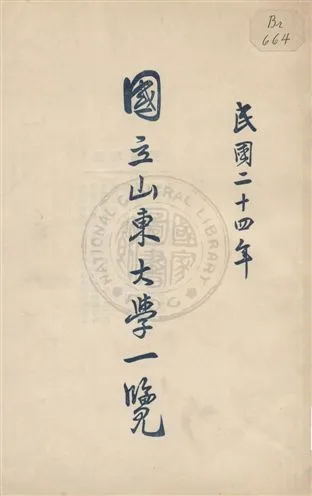 Br
664
民國二十四年
國立山東大學一覽
NATIONAL CENTRAL LIBRARY
國家圖書館